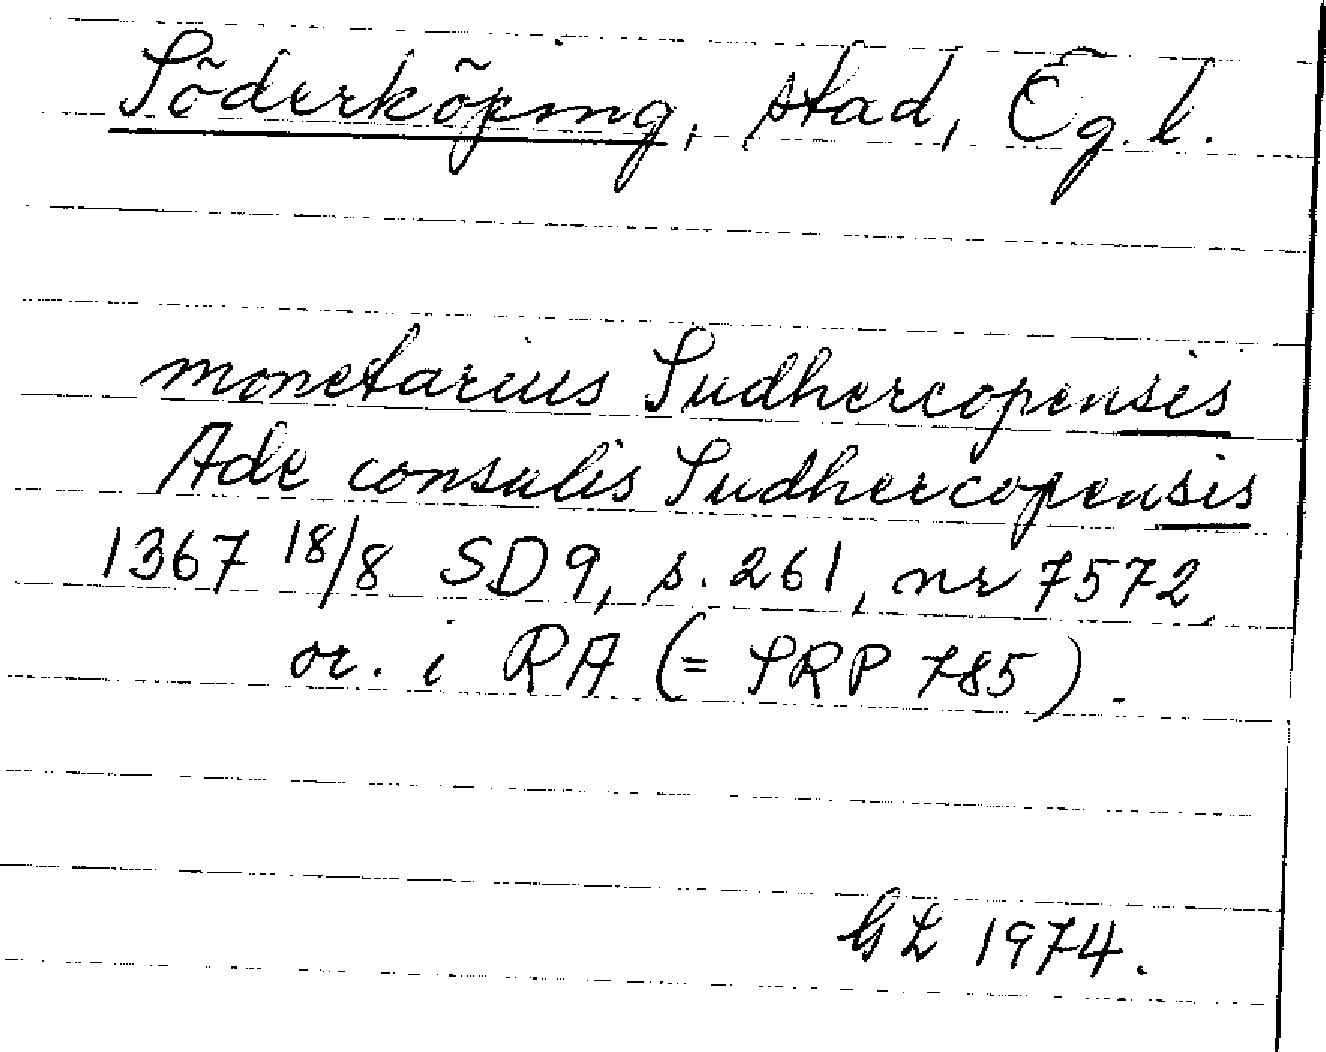 Söderköping, stad, Ög. l.
monetarius Sudhercopensis
Ade consulis Sudhercopensis
1367 18/8 SD 9, s. 261, nr 7572,
or. i RA (= SRP 785).
GL 1974.